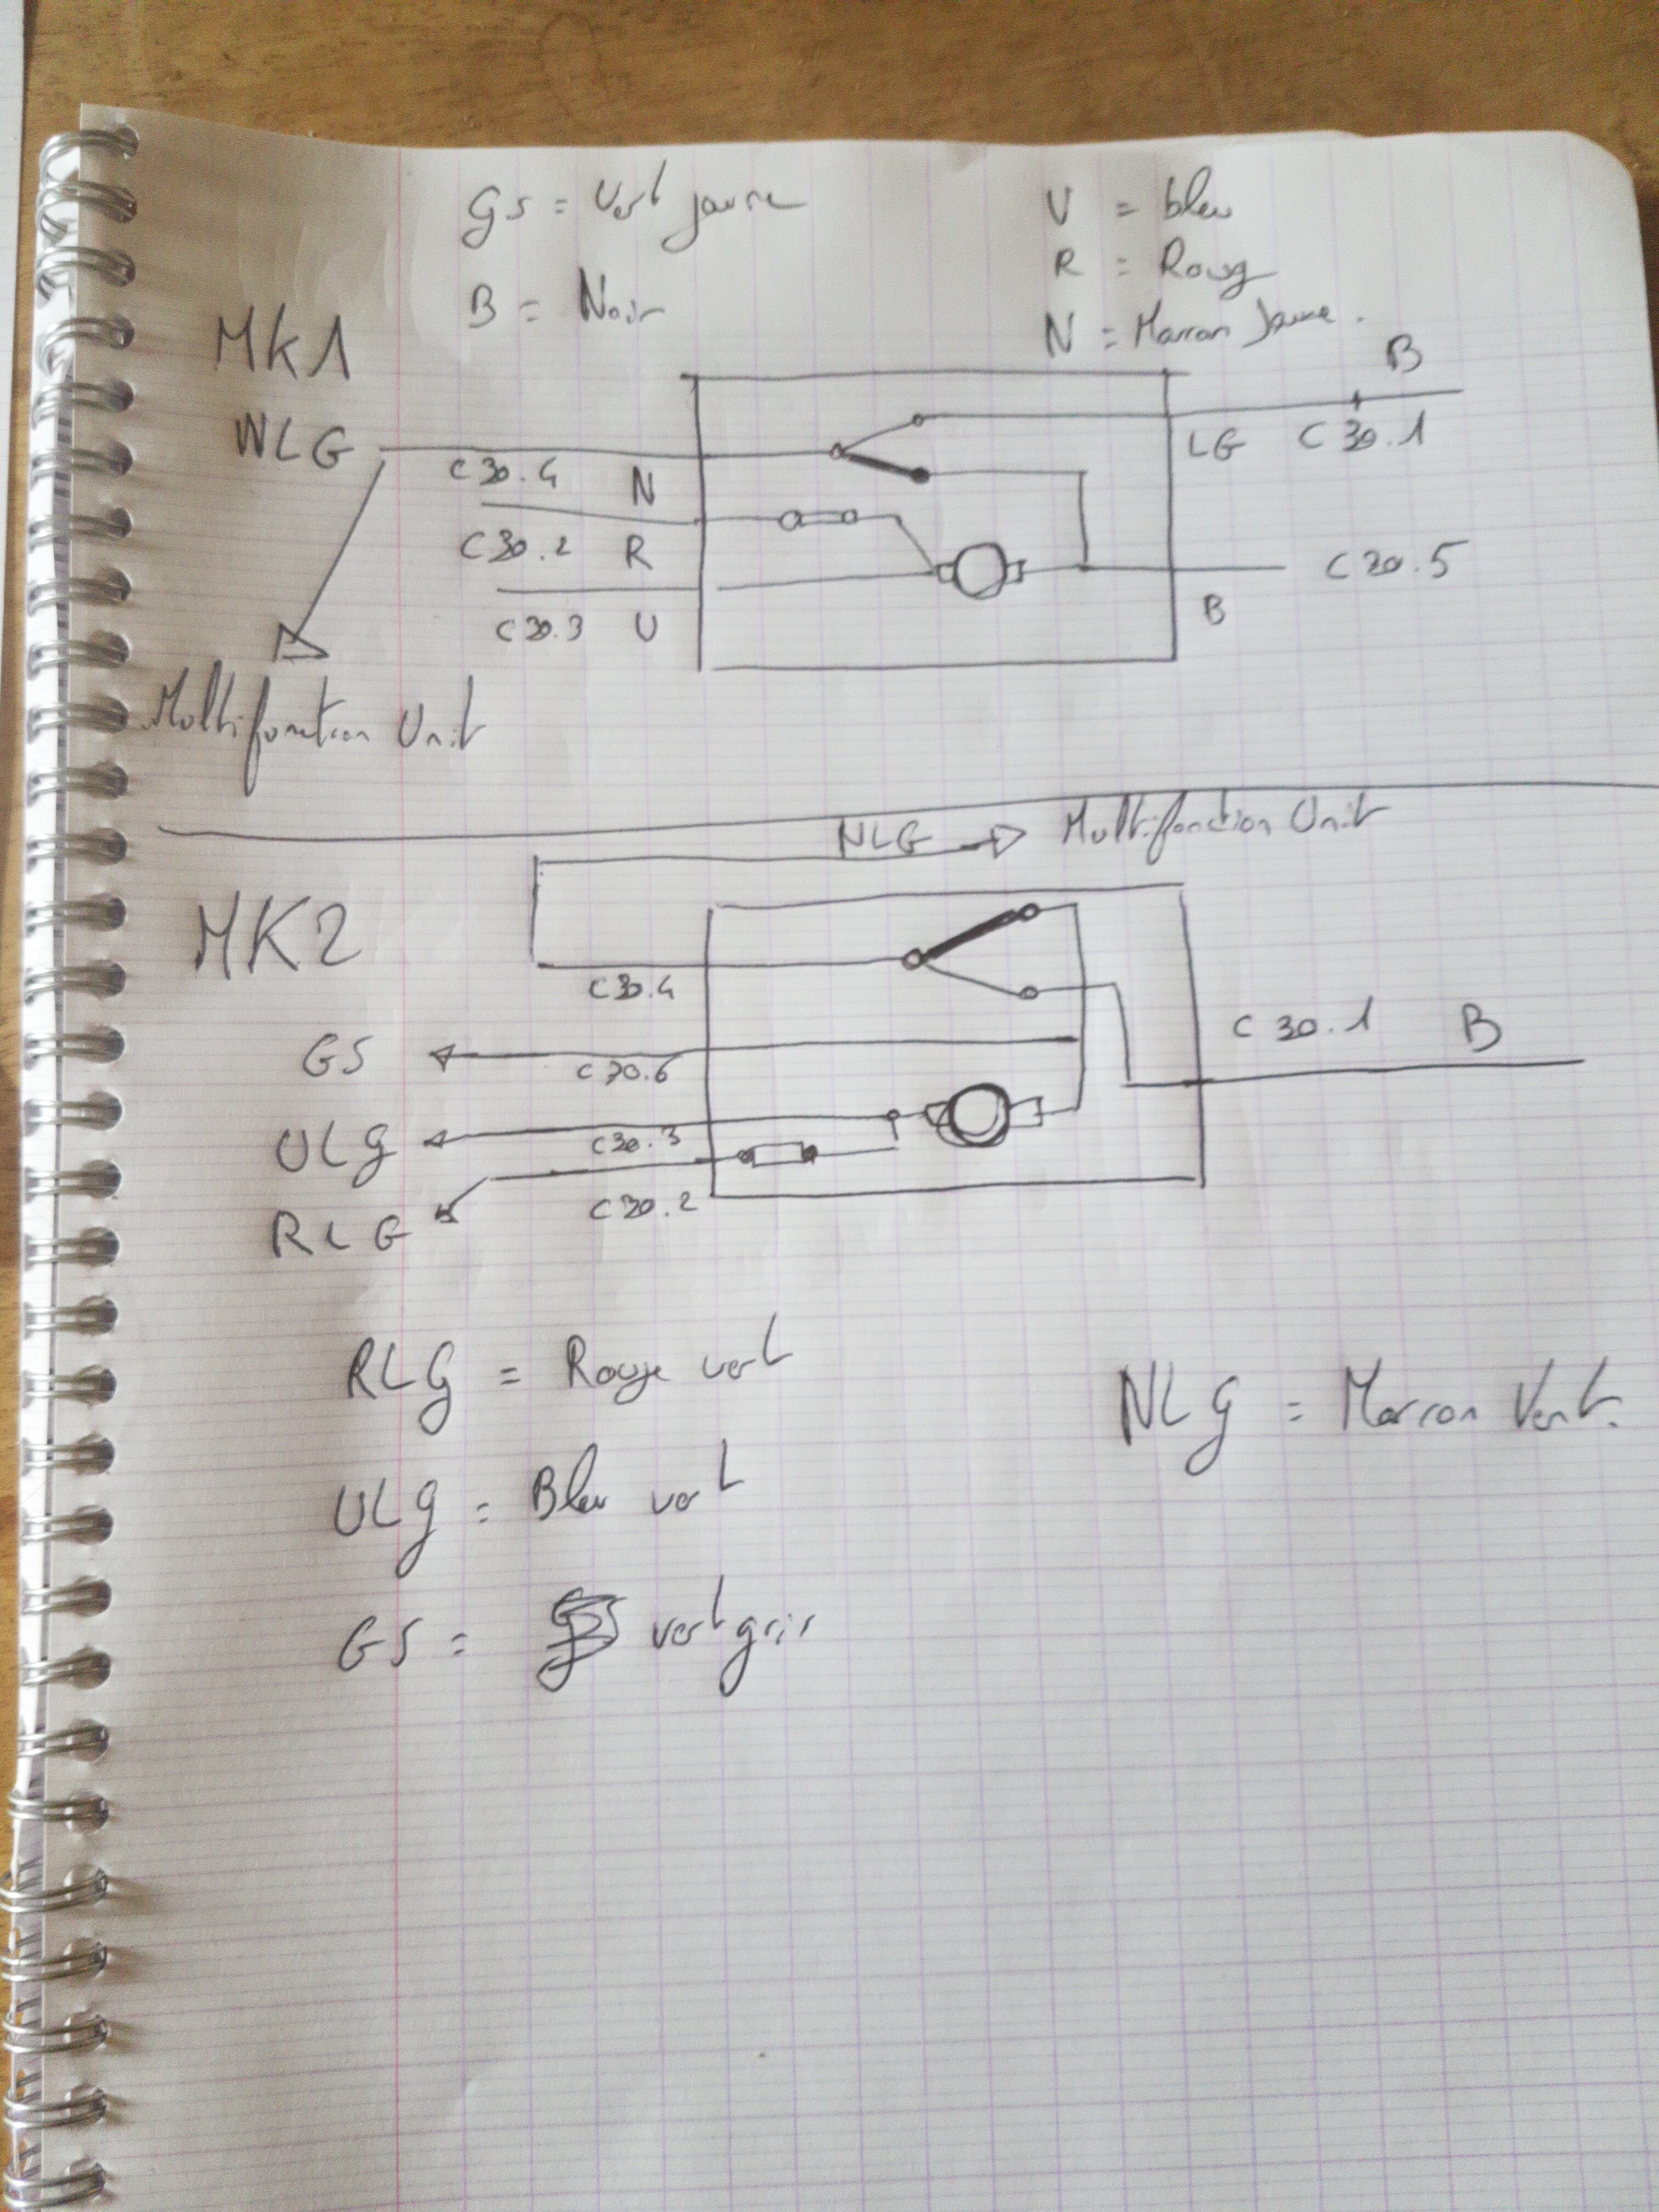 GS = Vert jaune
U = bleu
R = Roug
B = Noir
N = Marron Jaune.
MK1
B
NLG
C30.4 N
LG C30.1
C30.2 R
C30.5
C30.3 U
B
Multifonction Unit
NLG → Multifonction Unit
MK2
C30.4
C30.1 B
GS
C30.6
ULG
C30.3
C30.2
RLG
RLG = Rouge vert
NLG = Marron Vert.
ULG = Bleu vert
GS = vert gris